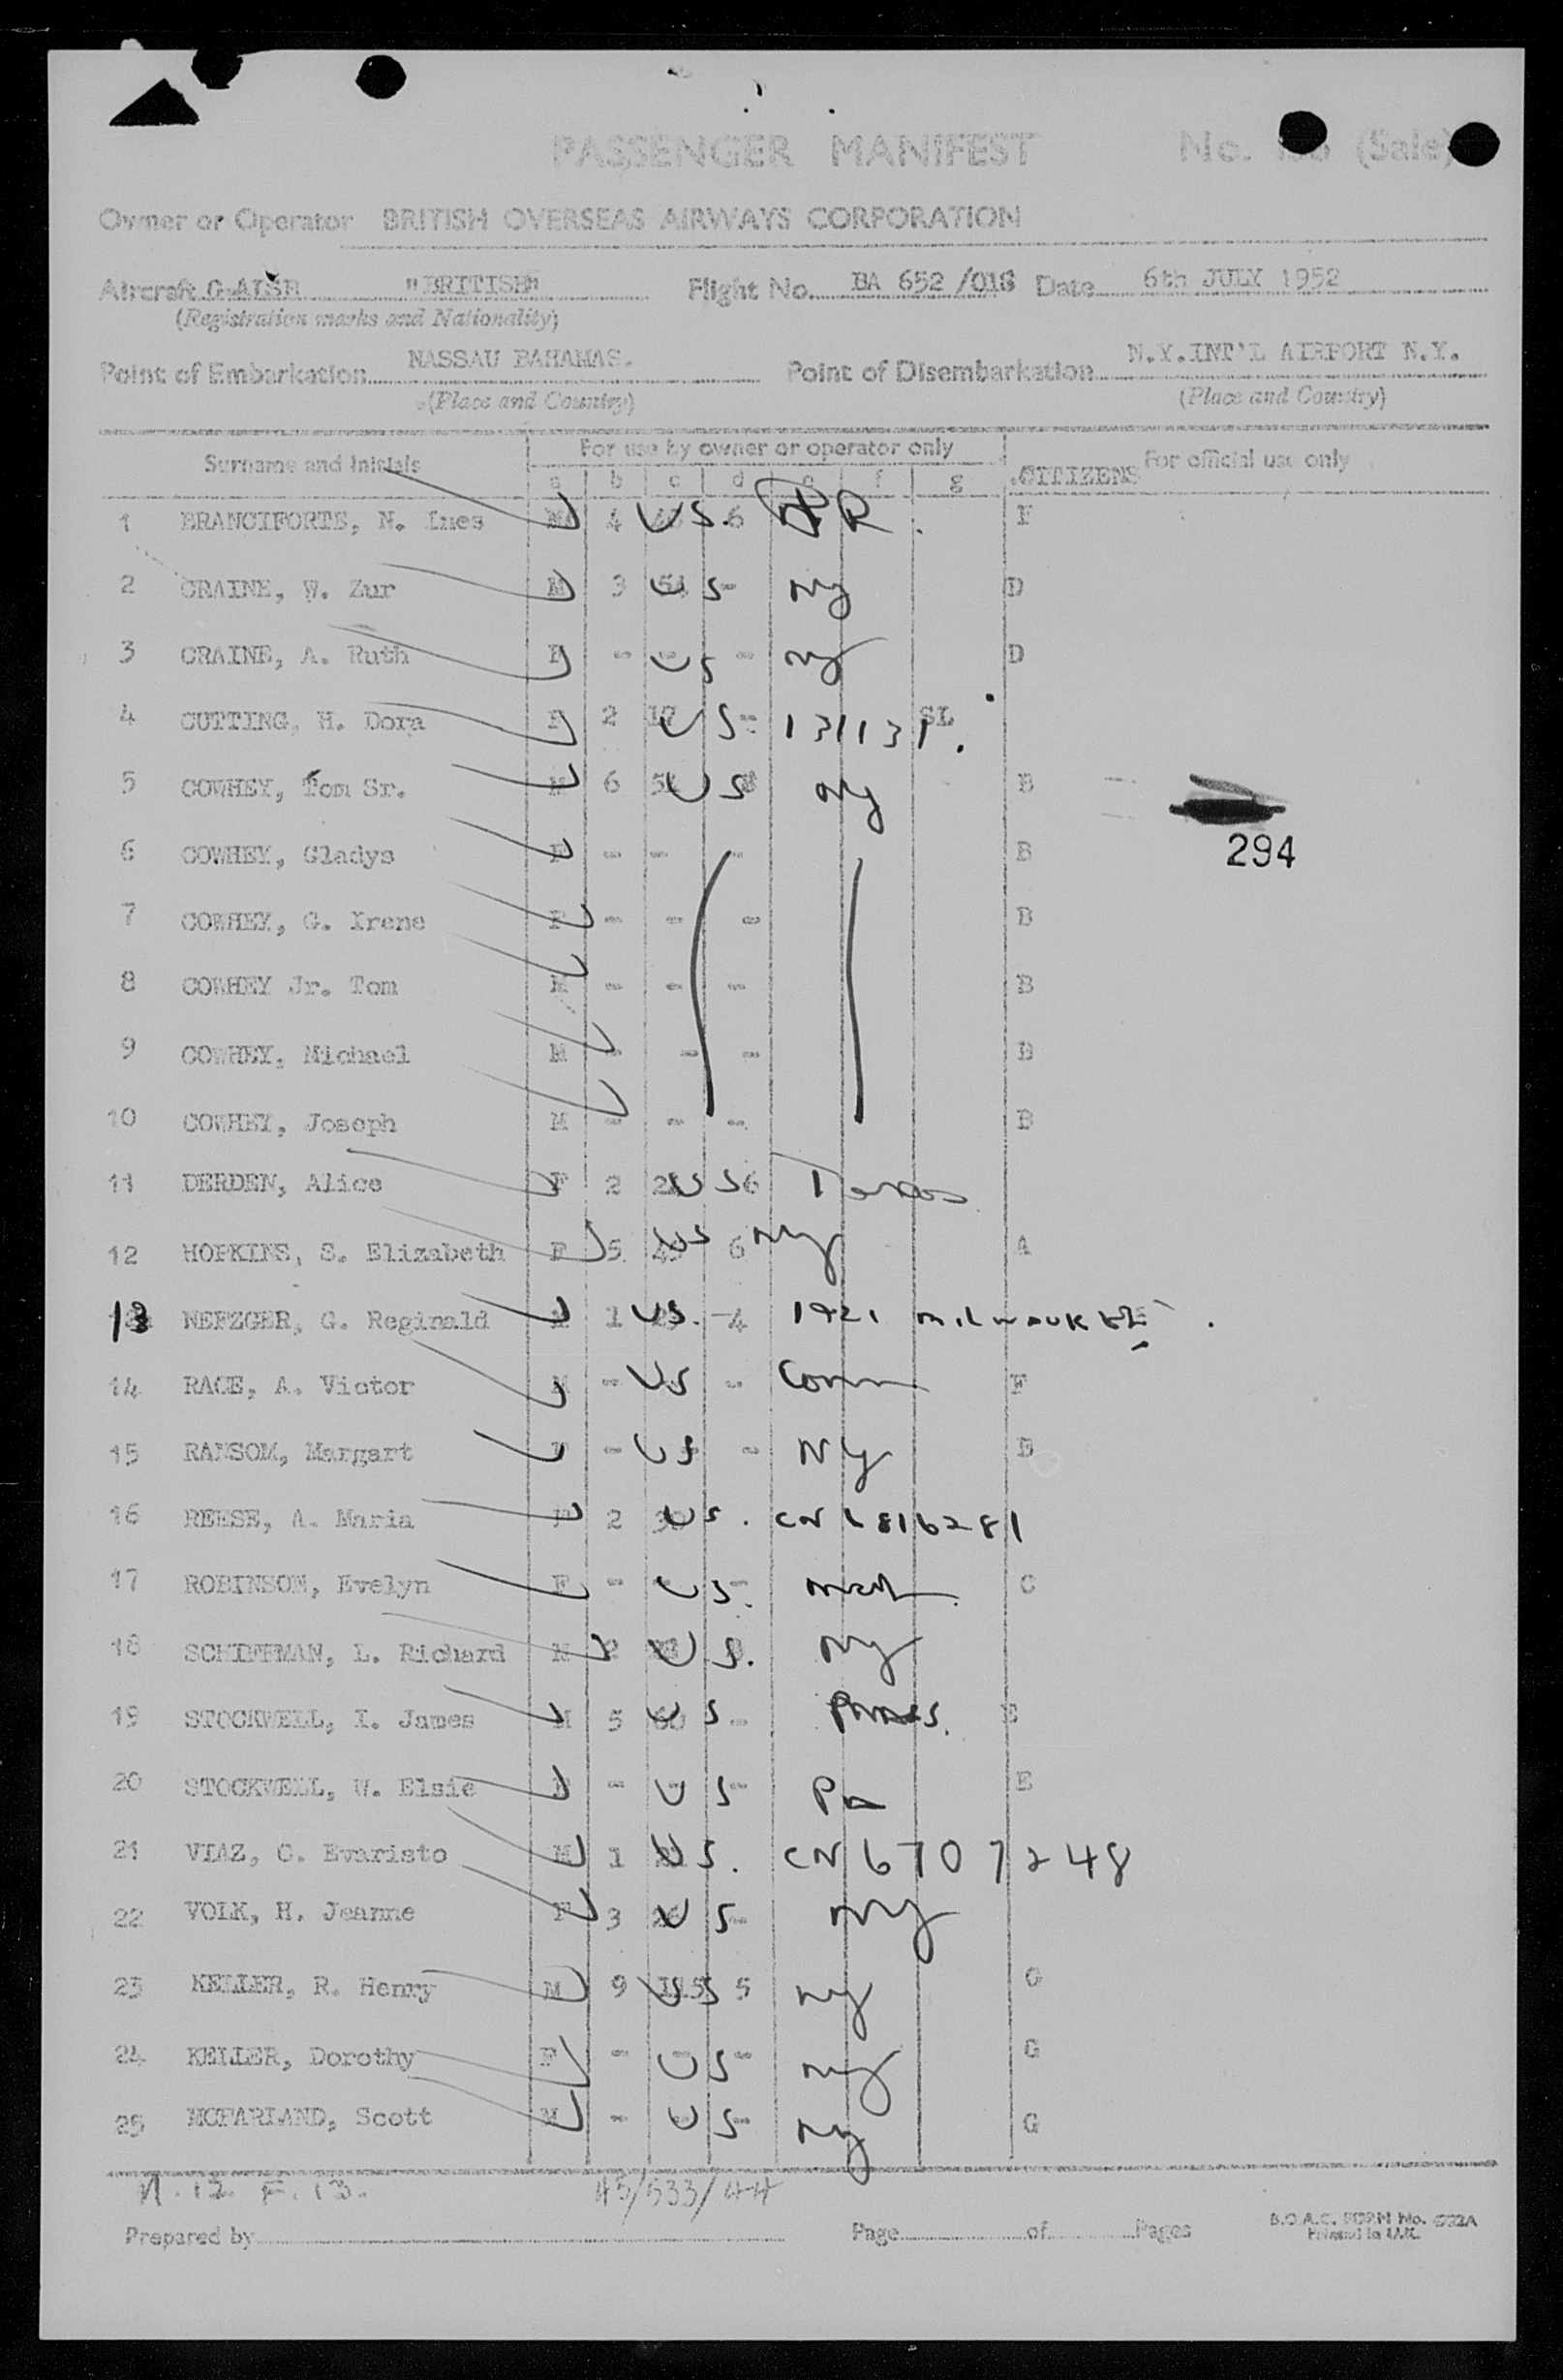 PASSENGER MANIFEST No. (Sale)
Owner or Operator BRITISH OVERSEAS AIRWAYS CORPORATION
Aircraft "BRITISH" Flight No. BA 652 /018 Date 6th JULY 1952
(Registration marks and Nationality)
Point of Embarkation NASSAU BAHAMAS. Point of Disembarkation N.Y.INT'L AIRPORT N.Y.
(Place and Country) (Place and Country)
Surname and Initials For use by owner or operator only CITIZENS For official use only
a b c d e f g
1 BRANCIFORTE, N. Ines 4 US. 6 PR. F
2 CRAINE, W. Zur M 3 US - NY D
3 CRAINE, A. Ruth F - US - NY D
4 CUTTING, H. Dora F 2 US - 131131. SL
5 COWHEY, Tom Sr. M 6 US NY B
6 COWHEY, Gladys F - - - B
7 COWHEY, G. Irene F - - - B
8 COWHEY Jr. Tom M - - - B
9 COWHEY, Michael M - - - B
10 COWHEY, Joseph M - - - B
294
11 DERDEN, Alice F 2 US 6 Texas
12 HOPKINS, S. Elizabeth F 5 US 6 NY A
13 NEFZGER, G. Reginald 1 US. - 4 1921 MILWAUKEE.
14 RACE, A. Victor M - US - Conn F
15 RANSOM, Margart F - US - NY
16 REESE, A. Maria F 2 US. CN 6816281
17 ROBINSON, Evelyn F - US. - C
18 SCHIFFMAN, L. Richard M 2 US. NY
19 STOCKWELL, I. James M 5 US - E
20 STOCKWELL, W. Elsie F - US - Pa E
21 VIAZ, C. Evaristo M 1 US. CN 6707248
22 VOLK, H. Jeanne F 3 US - NY
23 KELLER, R. Henry M 9 US 5 NY G
24 KELLER, Dorothy F - US - NY G
25 MCFARLAND, Scott M - US - NY G
M.12. F.13. 45/533/44
Prepared by Page of Pages B.O.A.C. FORM No.
Printed in U.K.